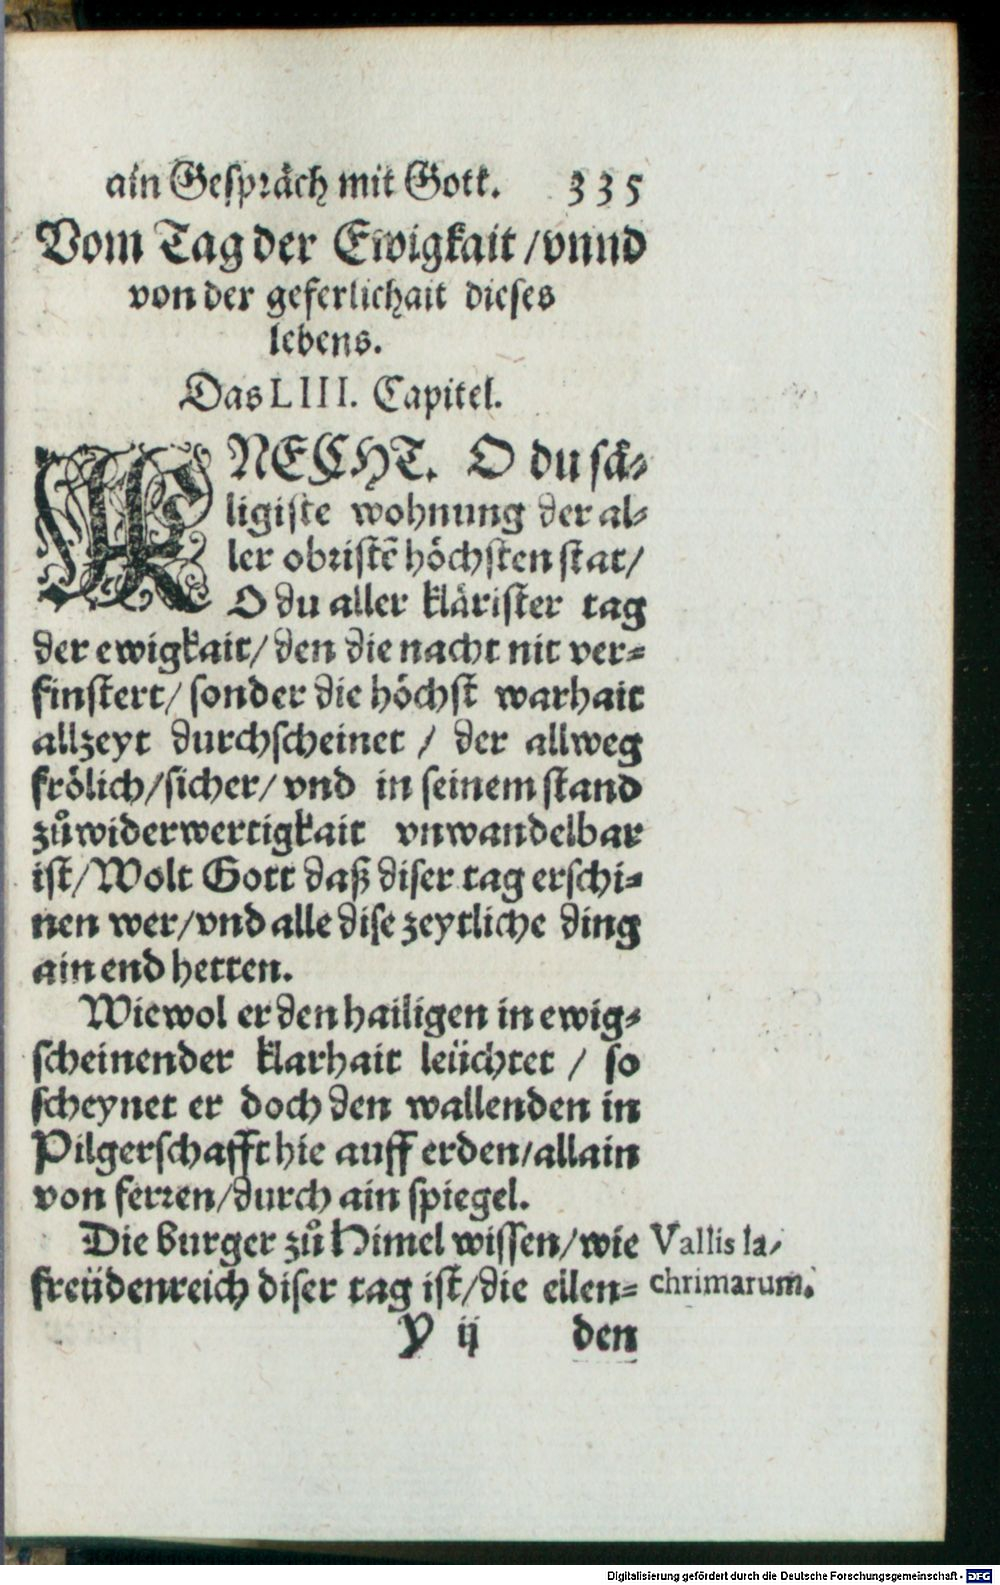 ain Gespräch mit Gott. 335
Vom Tag der Ewigkait / vnnd
von der geferlichait dieses
lebens.
Das LIII. Capitel.
KNECHT. O du sä-
ligiste wohnung der al-
ler obristē höchsten stat/
O du aller klärister tag
der ewigkait/ den die nacht nit ver-
finstert/ sonder die höchst warhait
allzeyt durchscheinet / der allweg
frölich/sicher/ vnd in seinem stand
zů widerwertigkait vnwandelbar
ist/ Wolt Gott daß diser tag erschi-
nen wer/vnd alle dise zeytliche ding
ain end hetten.
Wiewol er den hailigen in ewig-
scheinender klarhait leüchtet / so
scheynet er doch den wallenden in
Pilgerschafft hie auff erden/allain
von ferren/durch ain spiegel.
Die burger zů Himel wissen/wie
freüdenreich diser tag ist/die ellen-
Vallis la-
chrimarum.
Y ij den
Digitalisierung gefördert durch die Deutsche Forschungsgemeinschaft - DFG